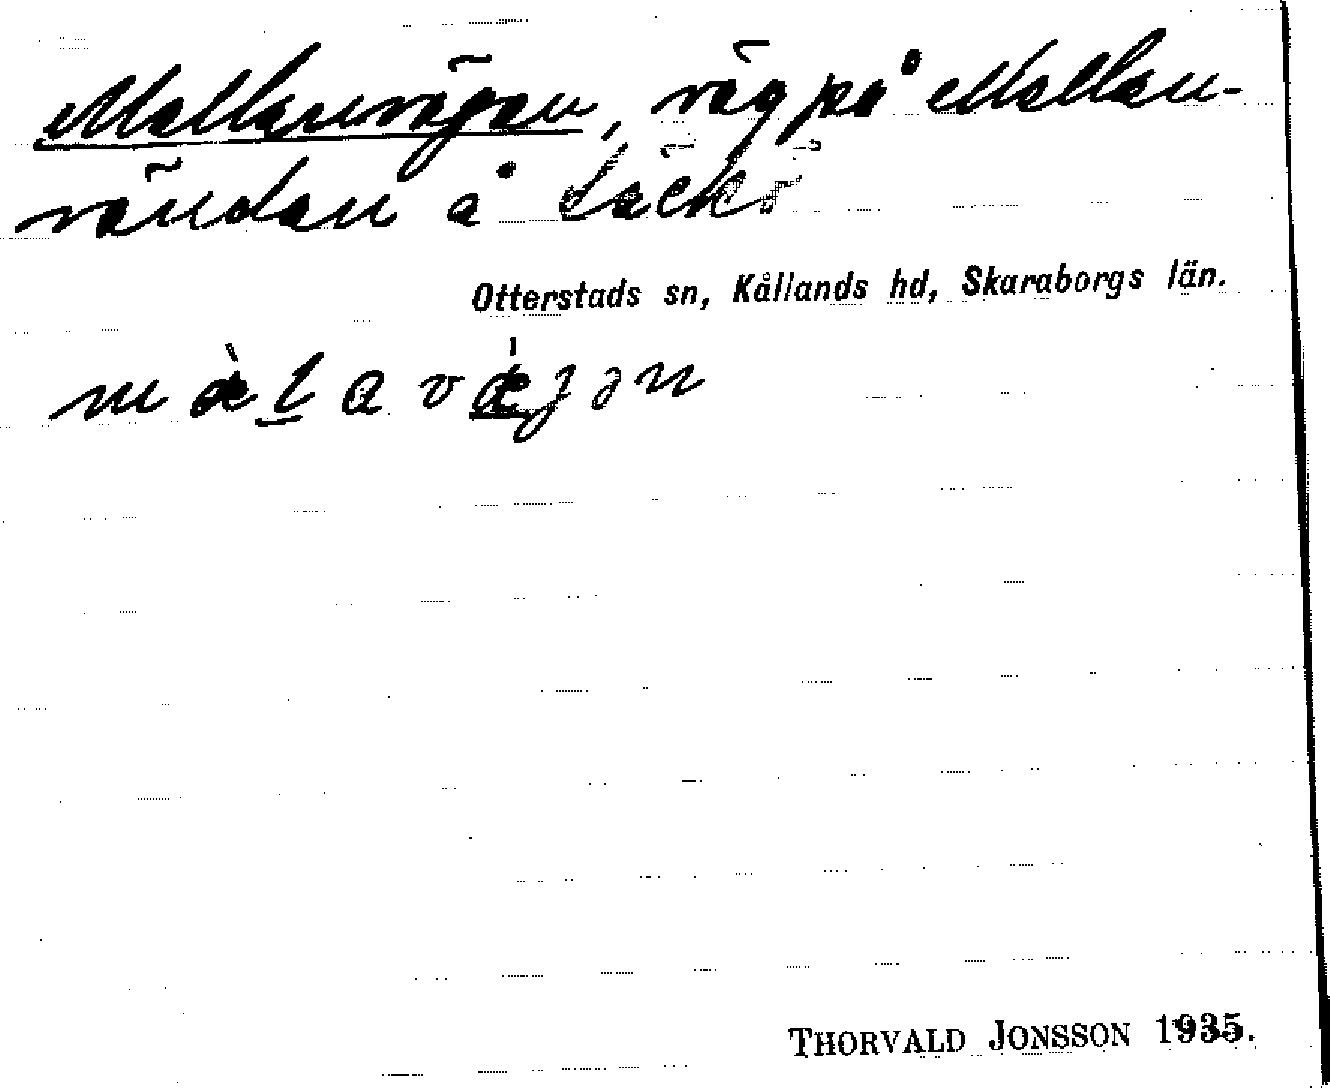 Mellanvägen, väg på Mellan-
vändan å Läckö
Otterstads sn, Kållands hd, Skaraborgs län.
THORVALD JONSSON 1935.